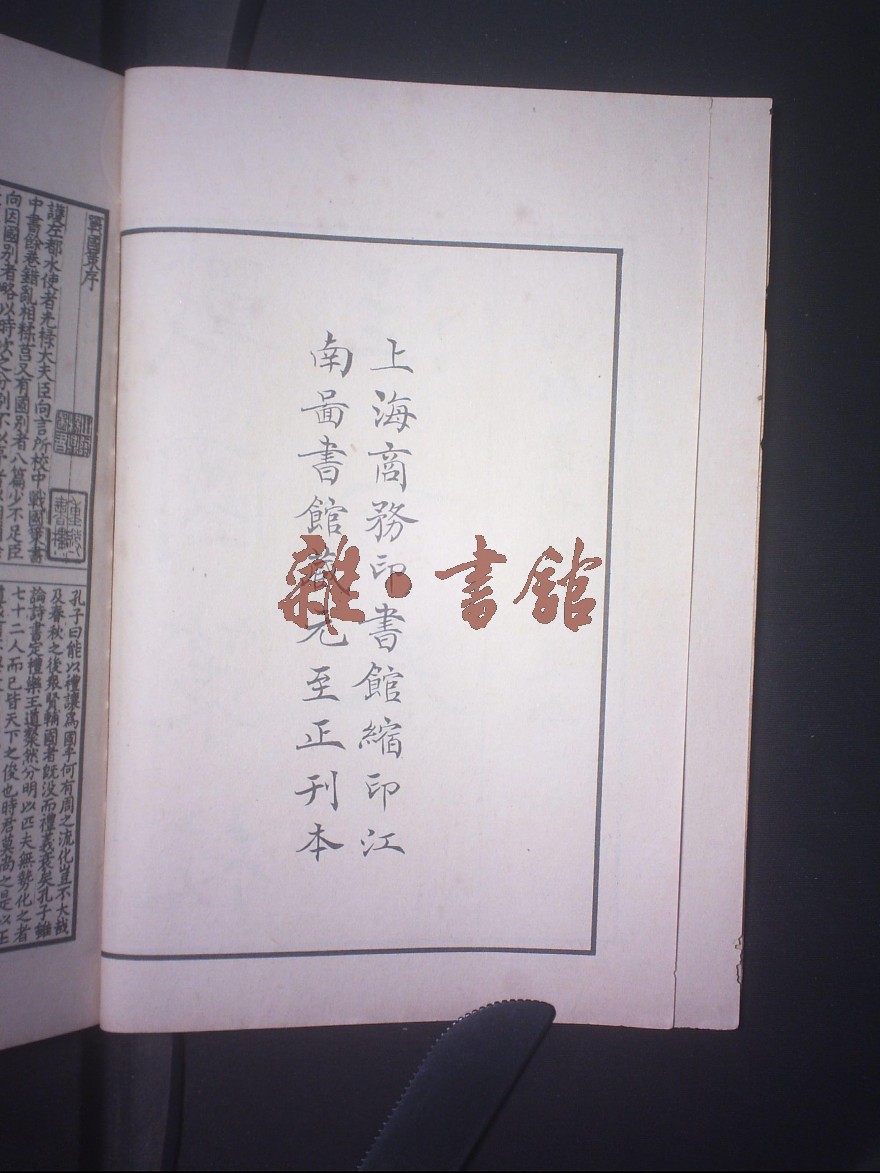 上海商務印書館縮印江
南啚書館藏元至正刊本
雜·書館
戰國策序
護左都水使者光祿大夫臣向言所校中戰國策書
中書餘卷錯亂相糅莒又有國別者八篇少不足臣
向因國別者略以時次之分別不以序者以
孔子曰能以禮讓爲國乎何有周之流化豈不大哉
及春秋之後衆賢輔國者旣没而禮義衰矣孔子雖
論詩書定禮樂王道粲然分明以匹夫無勢化之者
七十二人而已皆天下之俊也時君莫尚之是以王